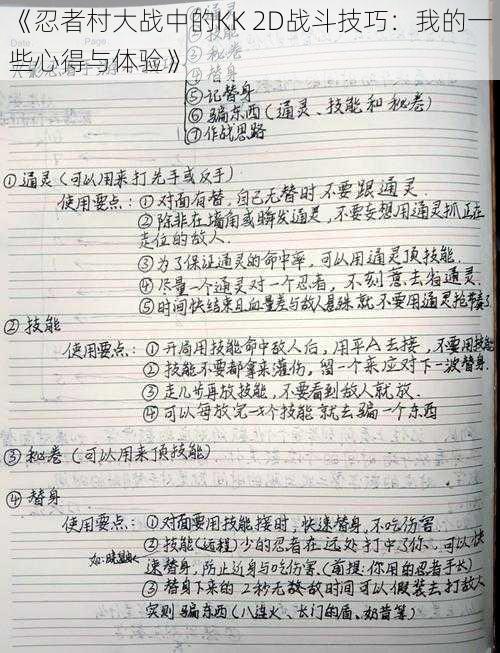 《忍者村大战中的KK 2D战斗技巧：我的一
些心得与体验》
① 通灵
② 技能
③ 秘卷
④ 替身
⑤ 记替身
⑥ 骗东西(通灵、技能和秘卷)
⑦ 作战思路
① 通灵(可以用来打先手或反手)
使用要点：① 对面有替，自己无替时不要跟通灵.
② 除非在墙角或瞬发通灵，不要妄想用通灵抓正在
走位的敌人.
③ 为了保证通灵的命中率，可以用通灵顶技能.
④ 尽量一个通灵对一个忍者，不刻意去省通灵.
⑤ 时间快结束且血量差与敌人悬殊就不要用通灵抢节奏了
② 技能
使用要点：① 开局用技能命中敌人后，用平A去接，不要用技能
② 技能不要都拿来灌伤，留一个来应对下一波替身.
③ 走几步再放技能，不要看到敌人就放.
④ 可以每放完一个技能就去骗一个东西
③ 秘卷(可以用来顶技能)
④ 替身
使用要点：① 对面要用技能接时，快速替身，不吃伤害
② 技能(远程)少的忍者在远处打中了你，可以快
速替身，防止近身与吃伤害.(前提：你用的忍者手长)
③ 替身下来的2秒无敌时间可以假装去打敌人
实则骗东西(八连火、长门的盾、奶昔等)